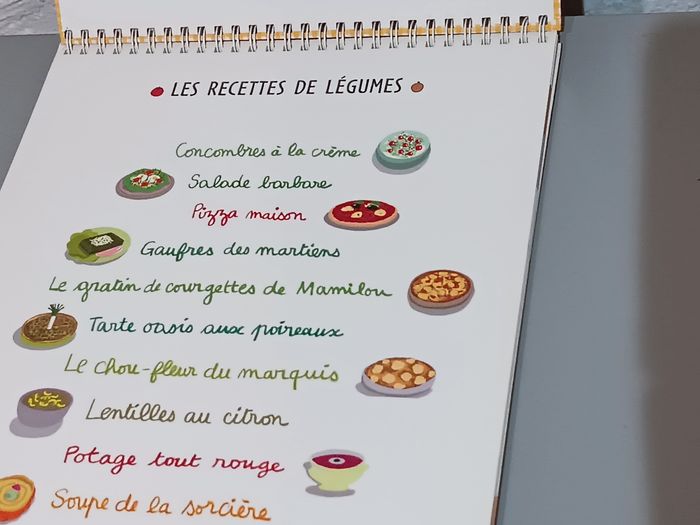 LES RECETTES DE LÉGUMES
Concombres à la crème
Salade barbare
Pizza maison
Gaufres des martiens
Le gratin de courgettes de Mamilou
Tarte oasis aux poireaux
Le chou-fleur du marquis
Lentilles au citron
Potage tout rouge
Soupe de la sorcière